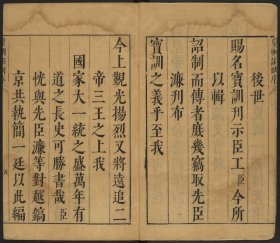 後世
賜名寶訓刊示臣工臣今所
以輯
詔制而傳者庶幾竊取先臣
濂刊布
寶訓之義乎至我
今上觀光揚烈又將遠追二
帝三王之上我
國家大一統之盛萬年有
道之長史可勝書哉臣
恍與先臣濂等對越鎬
京共執簡一延以此編